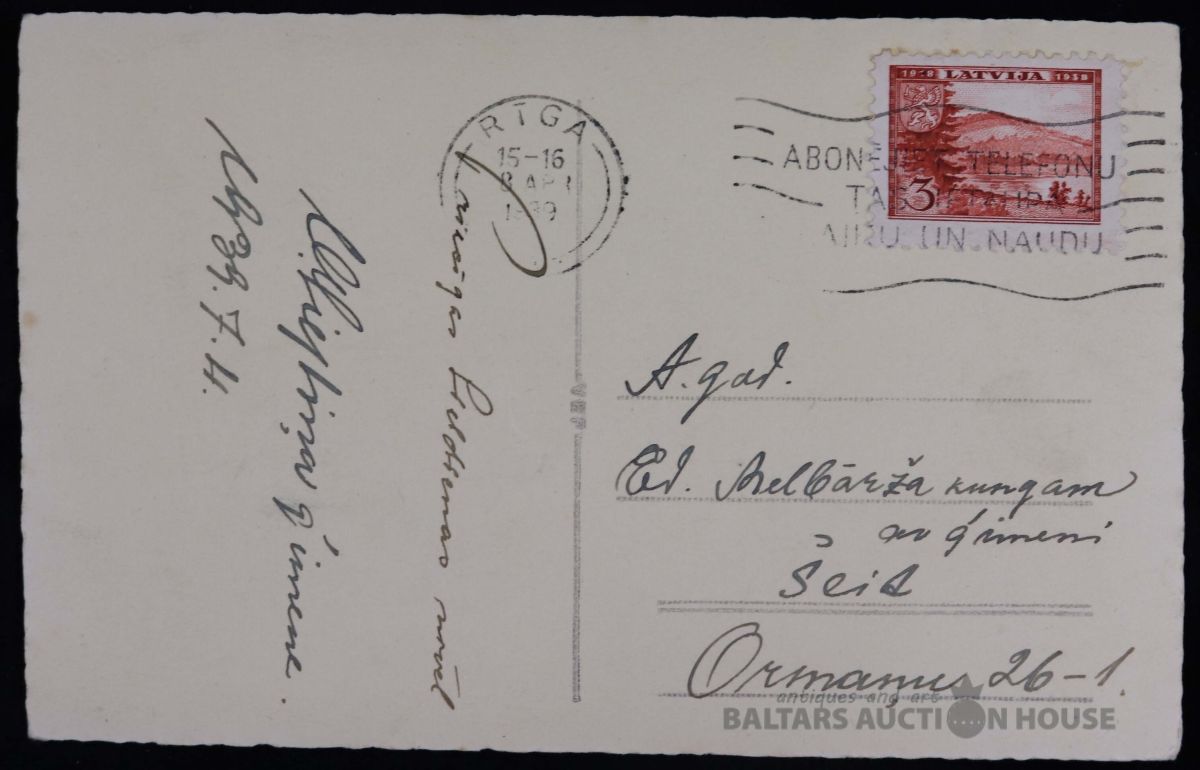 RĪGA
15-16
8 APR
1939
1918 LATVIJA 1938
3
ABONĒJIET TELEFONU
TAS IETAUPA
LAIKU UN NAUDU
Priecīgas Lieldienas novēl
ģimene.
1939. 7. 4.
VEF
A. god.
Ed. Melbārža kungam
ar ģimeni
Šeit
Ormaņu 26-1.
antiques and art
BALTARS AUCTION HOUSE